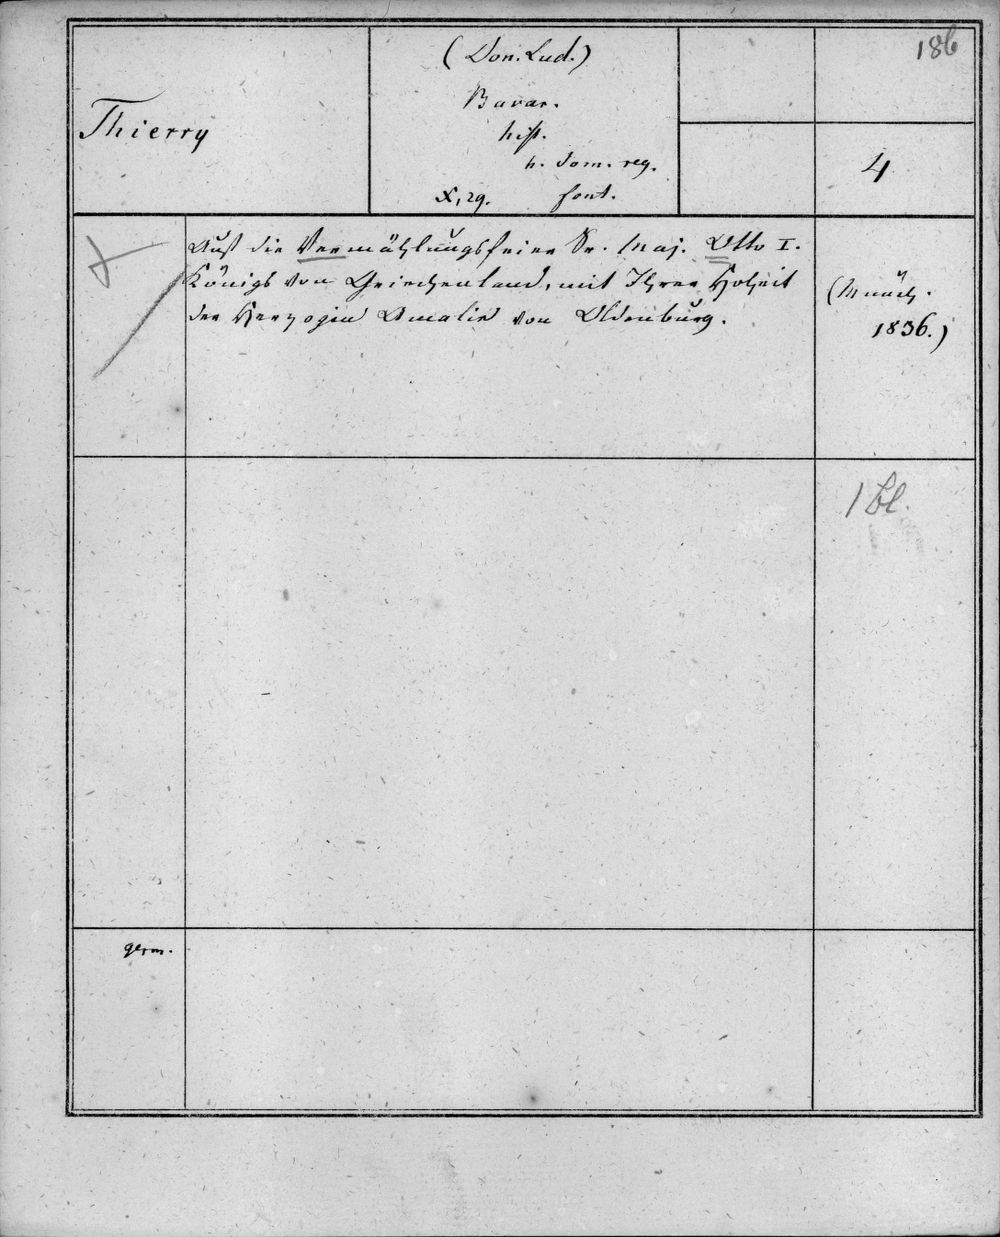 186
(Don. Lud.)
Bavar.
hist.
h. dom. reg.
X, 29. font.
Thierry
4
Auf die Vermählungsfeier Sr. Maj. Otto I.
Königs von Griechenland, mit Ihrer Hoheit
der Herzogin Amalie von Oldenburg.
(Münch.
1836.)
1 Bl.
germ.